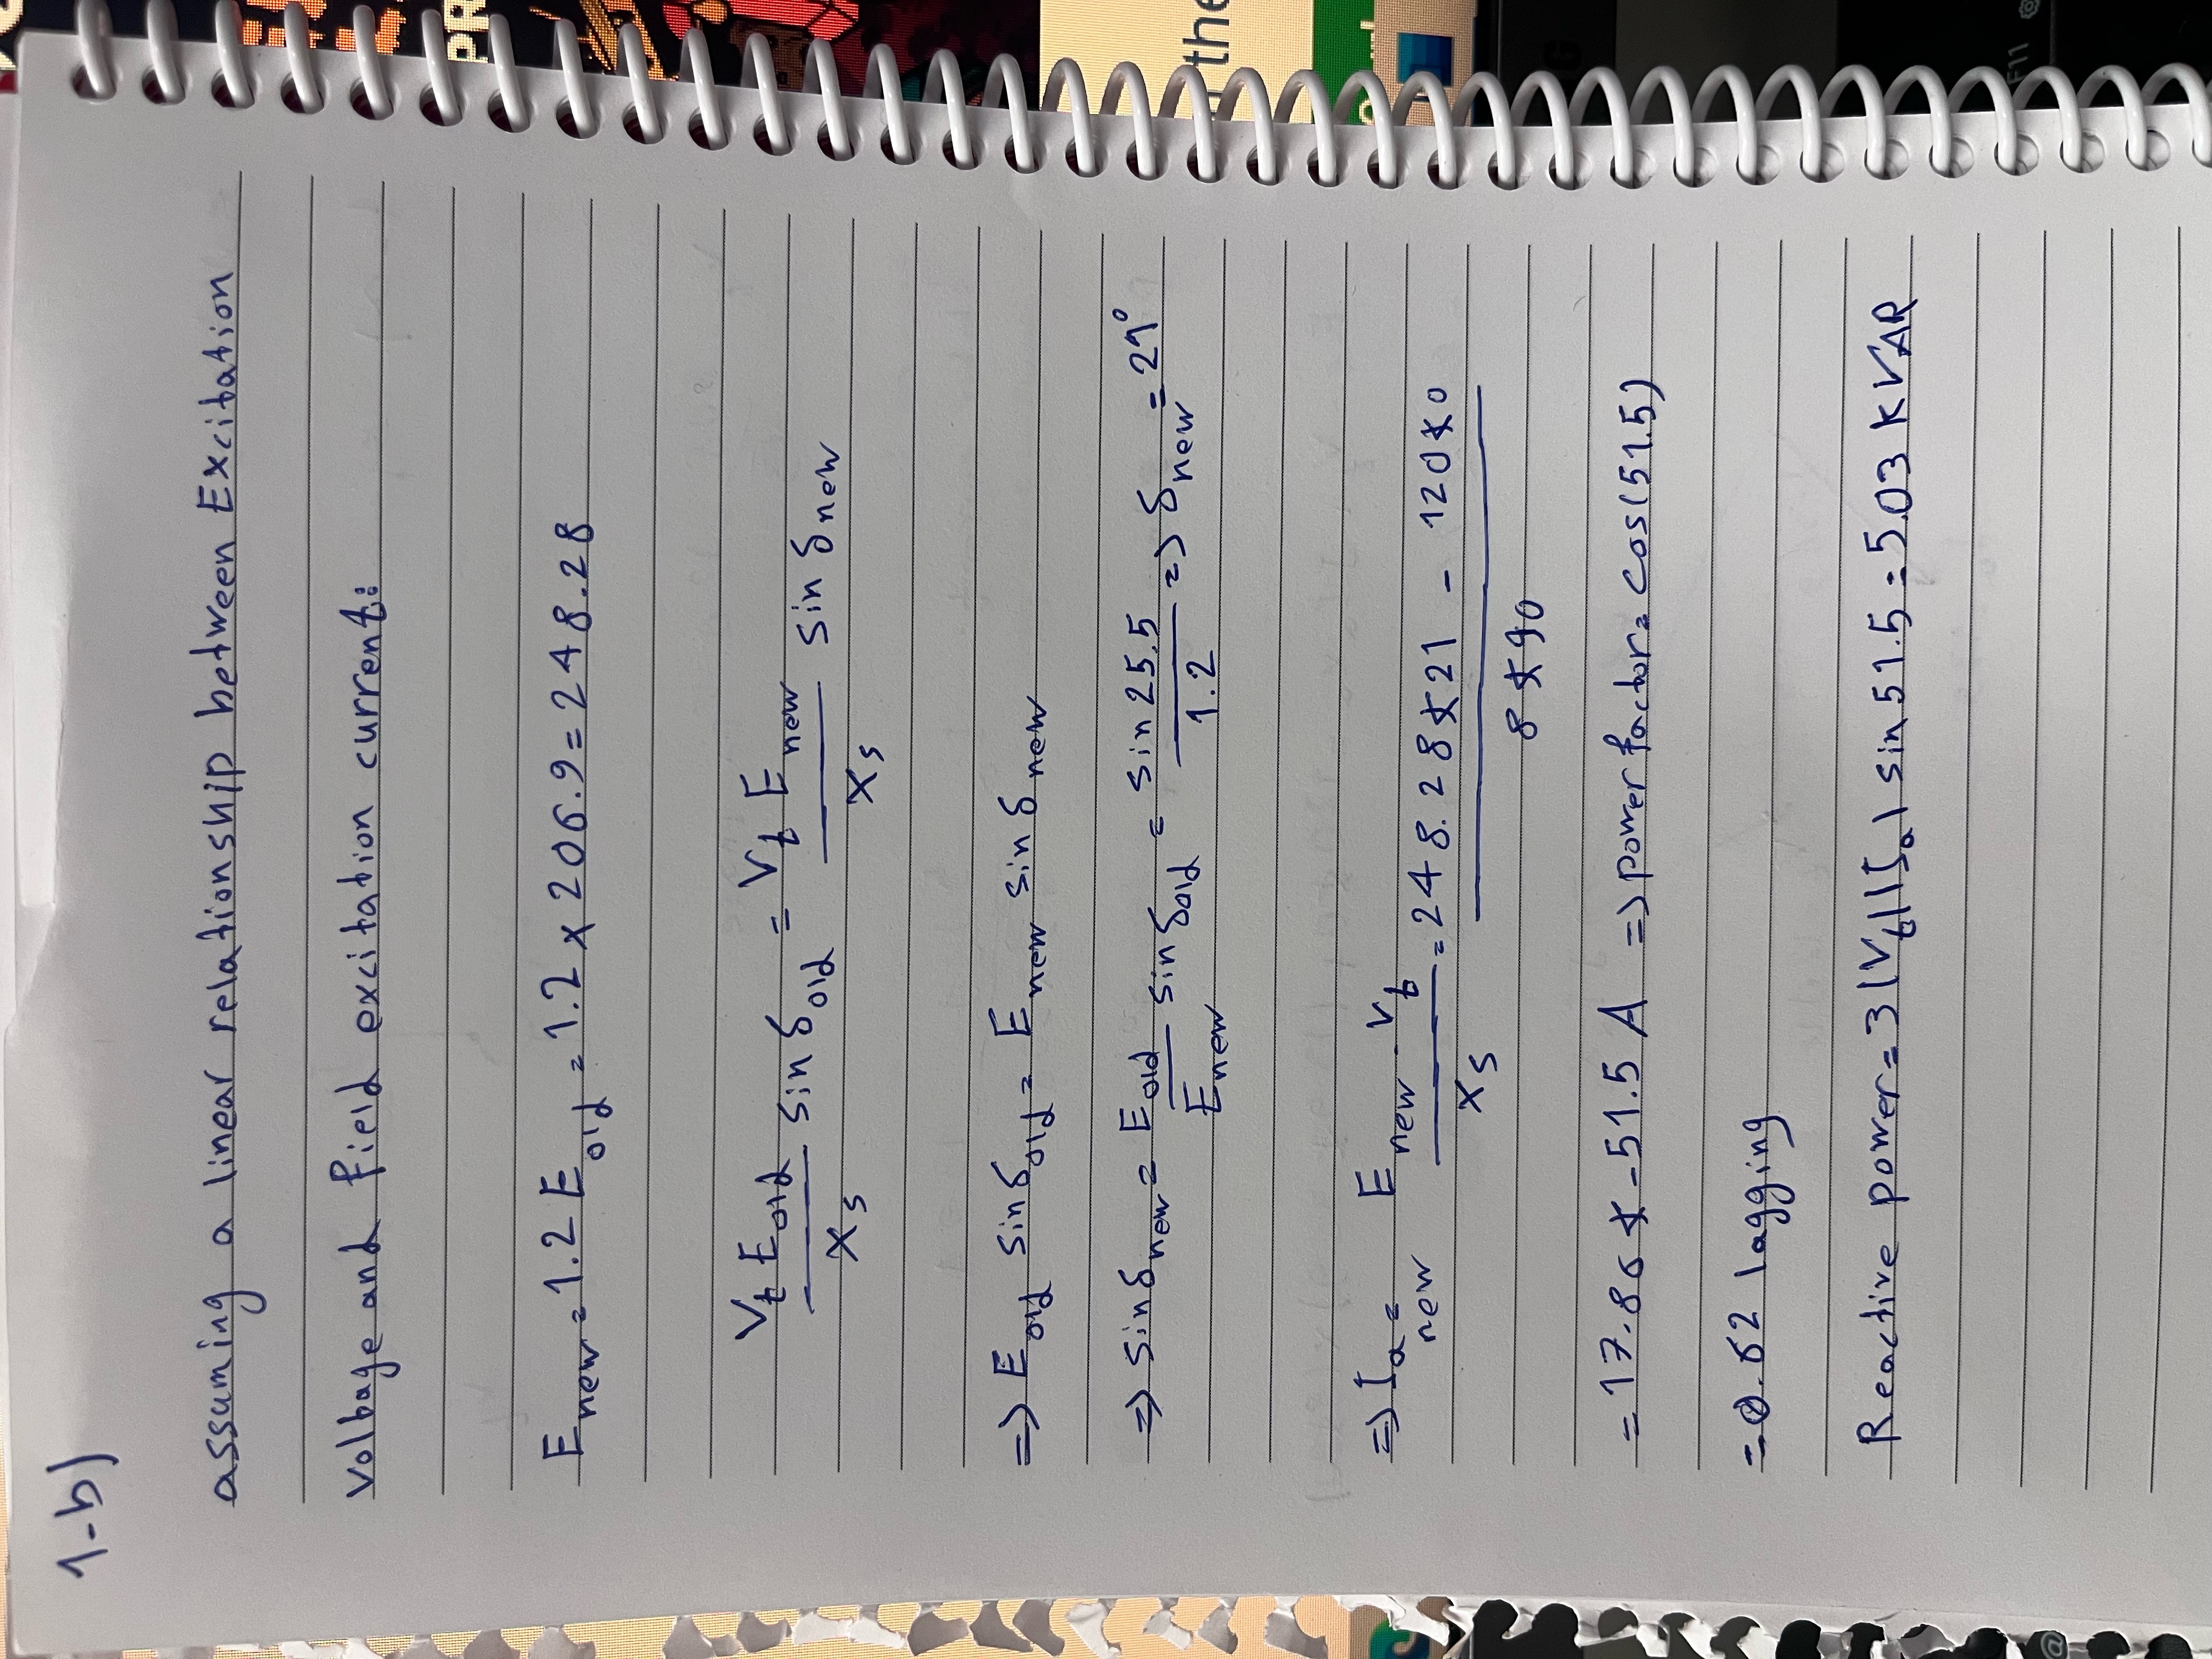 1-b)
assuming a linear relationship between Excitation
voltage and field excitation current:
E new = 1.2 E old = 1.2 x 206.9 = 248.28
Vt E old / Xs sin δ old = Vt E new / Xs sin δ new
=> E old sin δ old = E new sin δ new
=> sin δ new = E old / E new sin δ old = sin 25.5 / 1.2 => δ new = 21°
=> Ia new = E new - Vt / Xs = 248.28∠21 - 120∠0 / 8∠90
= 17.86∠-51.5 A => power factor = cos(51.5)
= 0.62 lagging
Reactive power = 3 |Vt| |Ia| sin 51.5 = 5.03 KVAR
PR
the
F11
@